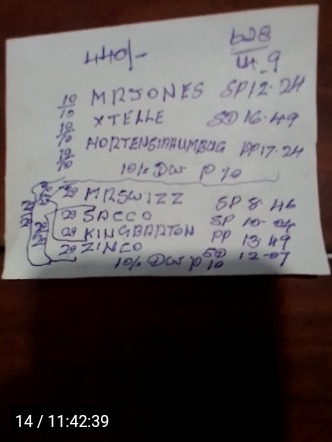 440/-
628
14.9
10/10 MRJONES SP 12.24
10/10 XTELLE SD 16.49
10/10 HORTENSIAHUMBUG PP 17.24
10/10
10% DW P 10
20 MRSWIZZ SP 8.46
20 SACCO SP 10-04
20 KINGBARTON PP 13 49
20 ZINCO SD 12-07
10% DW P 10
14 / 11:42:39